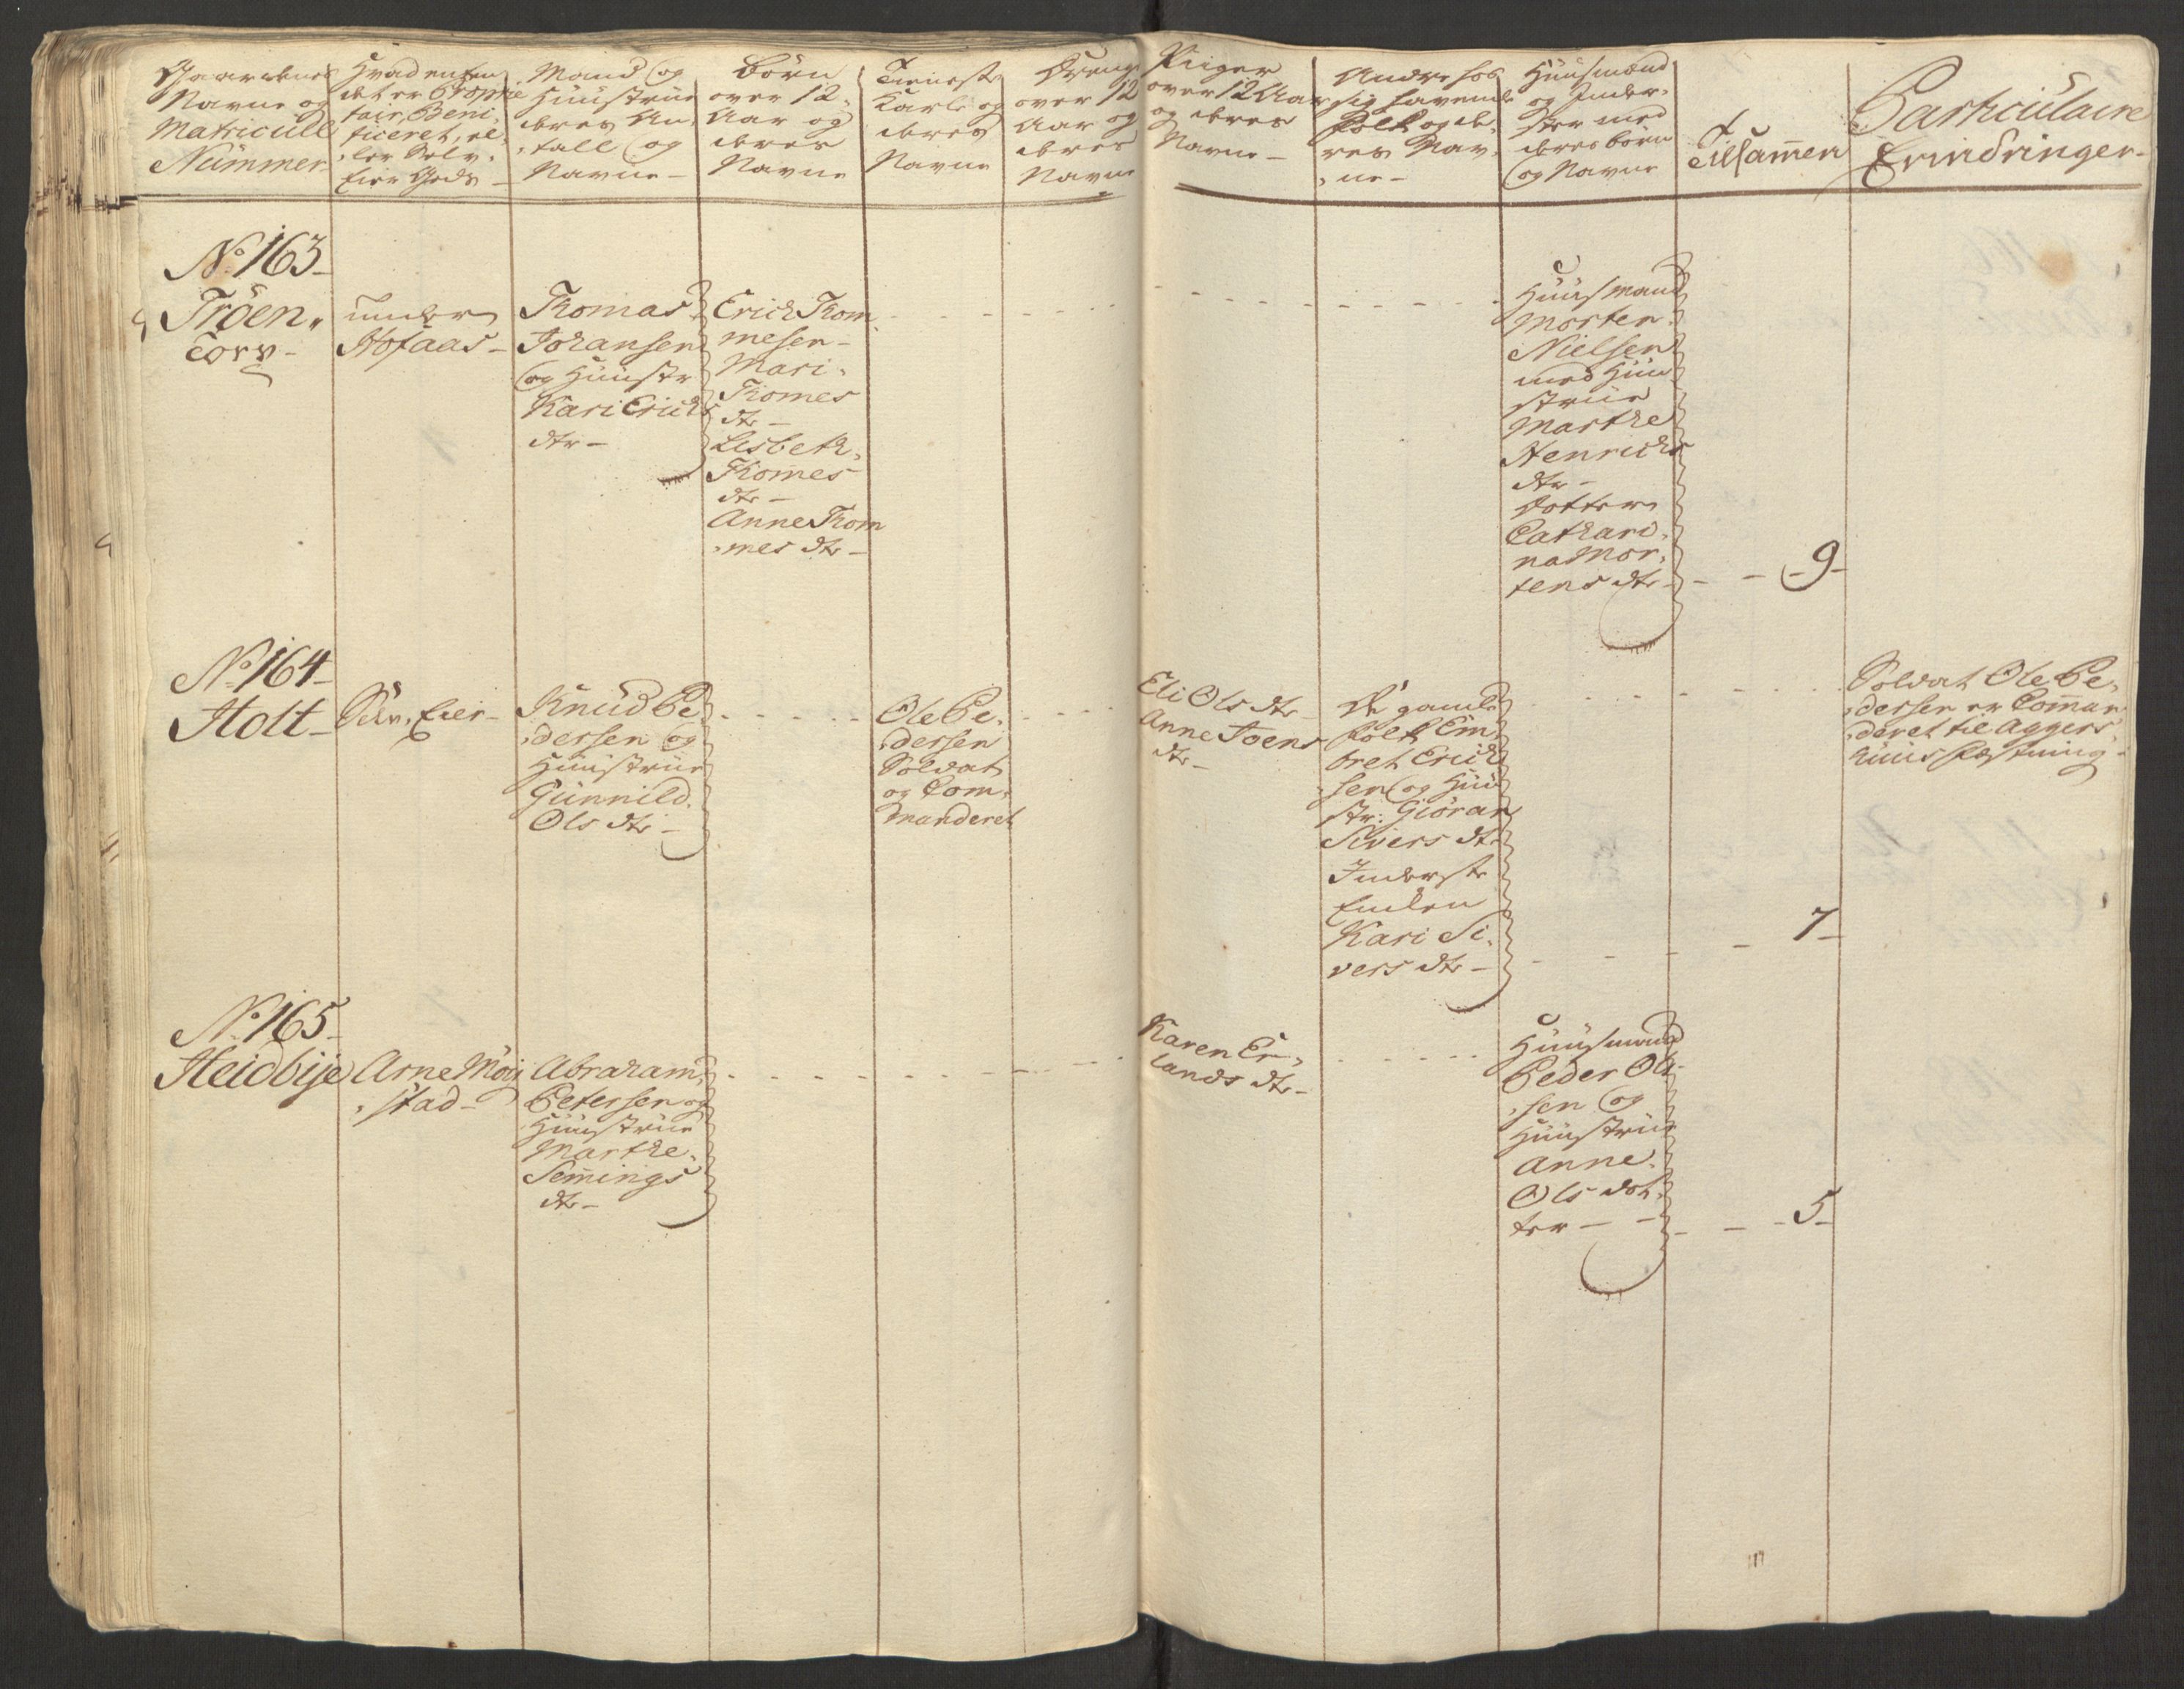 Gaardenes
Navne og
Matricull
Nummer
Hvad enten
det er Proprie
tair, Beni,
ficeret, el,
ler Selv,
Eier Gods
Mand og
Huustrue
deres An,
tall og
Navne
Börn
over 12
Aar og
deres
Navne
Tieneste
Karle og
deres
Navne
Drenge
over 12
Aar og
deres
Navne
Piiger
over 12 Aar
og deres
Navne
Andre hos
sig havende
Folk og de,
res Nav,
ne
Huusmænd
og Inder,
ster med
deres börn
og Navne
Tilsam̄en
Particulaire
Erindringer
No 163
Tröen,
Torv
under
Hofaas
Thomas
Johansen
og Huustr
Kari Erichs
dtr
Erich Thom
mesen
Mari
Thomes
dtr
Lisbeth
Thomes
dtr
Anne Thom
mes dtr
Huusmand
Morten
Nielsen
med Huu
strue
Marthe
Henrichs
dtr
Dotter
Cathari,
na Mor,
tens dtr
9
No 164
Holt
Selv, Eier
Knud Pe,
dersen og
Huustrue
Gunnild
Ols dtr
Ole Pe,
dersen
Soldat
og Com,
manderet
Eli Ols dtr
Anne Joens
dtr
De gamle
folk Em
bret Erich
sen og Huu
str: Giöran
Sivers dtr
Inderste
Enken
Kari Si,
vers dtr
7
Soldat Ole Pe,
dersen er Com̄an
deret til Aggers,
huus Fæstning
No 165
Heidbije
Arne Moi
stad
Abraham
Petersen og
Huustrue
Marthe
Sem̄ings
dtr
Karen Er,
lands dtr
Huusmand
Peder Ol
sen og
Huustrue
Anne
Ols dot
ter
5